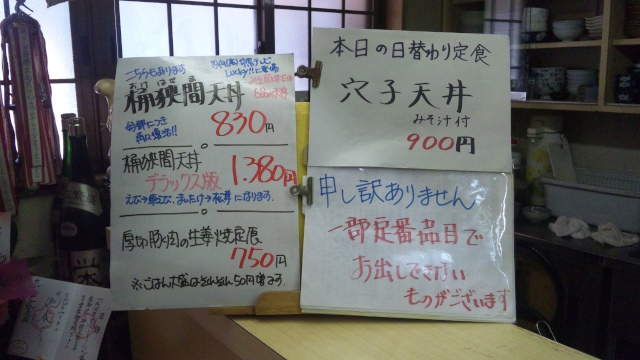 こちらもあります
Lucky!!に登場
おけはざま
桶狭間天丼
好評につき
再復活!!
830円
桶狭間天丼
デラックス版
1.380円
えび→車えび、まいたけ→松茸になります。
厚切豚肉の生姜焼定食
750円
※ごはん大盛はそれぞれ50円増です。
本日の日替わり定食
穴子天丼
みそ汁付
900円
申し訳ありません
一部定番品目で
お出しできない
ものがございます